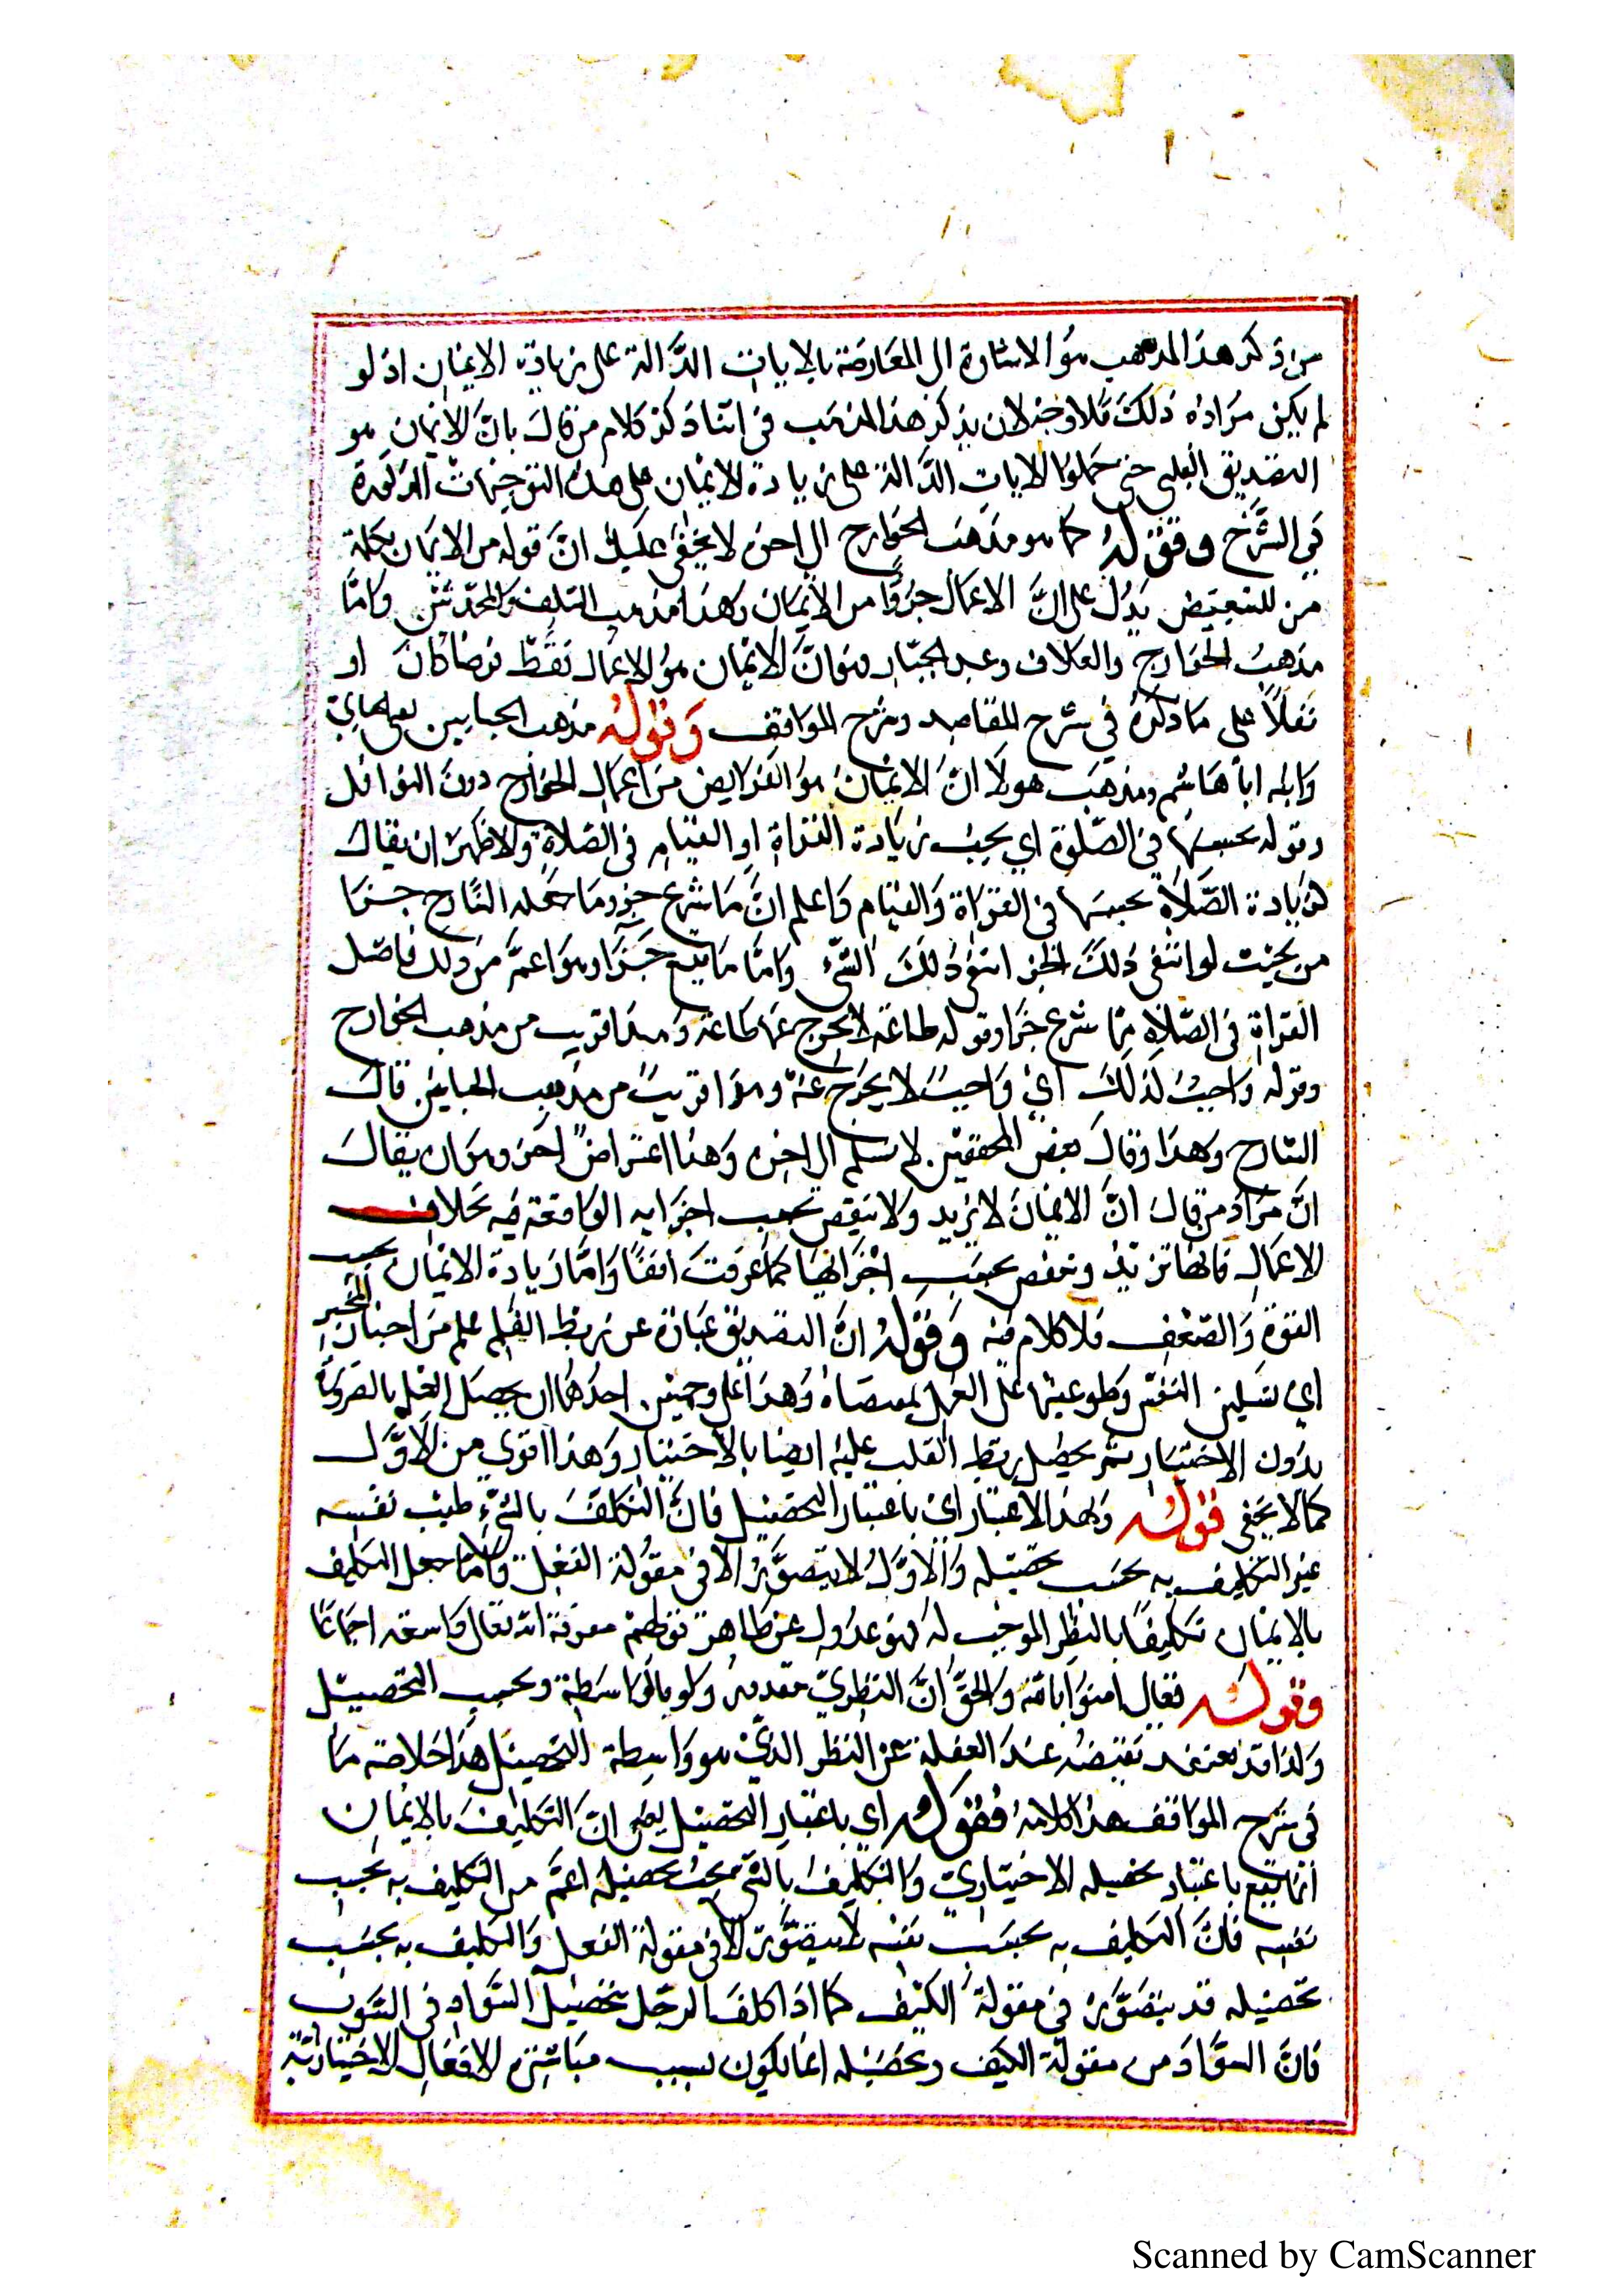 من ذكر هذا المذهب هو الاشارة الى المعارضة بالايات الدَّالة على زيادة الايمان اذ لو
لم يكن مراده ذلك فلا وجه لان يذكر هذا المذهب في اثنا ذكر كلام من قال بانَّ الايمان هو
التصديق القلبي حتى حملوا الايات الدَّالة على زيادة الايمان على هذه التوجيهات المذكورة
في الشَّرح وقوله كما هو مذهب الخوارج الى اخره لا يخفى عليك انَّ قوله من الايمان بكلمة
من للتبعيض يدل على انَّ الاعمال جزؤا من الايمان وهذا مذهب السلف والمحدثين وامَّا
مذهب الخوارج والعلاف وعبد الجبّار هو انَّ الايمان هو الاعمال فقط فرضا كان او
نفلاً على ما ذكره في شرح المقاصد وشرح المواقف وقوله مذهب الجبايين
وابنه ابا هاشم ومذهب هولا انَّ الايمان هو الفرايض من اعمال الجوارح دون النوافل
وقوله بحسبها في الصّلوة اي بحسب زيادة القراة او القيام في الصلاة والاظهر ان يقال
زيادة الصَّلاة بحسبها في القراة والقيام واعلم انَّ ما شرع جزو ما جعله الشارح جزا
من بحيث لو انتفى ذلك الجز انتفى ذلك الشيء وامَّا ما يقع جزا وهو اعمَّ من ذلك فاصل
القراة في الصّلاة ممّا شرع جزا وقوله طاعة لا يخرج عنها طاعة وهذا قريب من مذهب الخوارج
وقوله واجب لذلك اي واجب لا يخرج عنه وهو قريب من مذهب الجبايين قال
الشارح وهذا وقال بعض المحققين لا نسلم الى اخره وهنا اعتراض اخر وهو ان يقال
انَّ مراد من قال انَّ الايمان لا يزيد ولا ينقص بحسب اجزايه الواقعة فيه بخلاف
الاعمال فانها تزيد وتنقص بحسب اجزائها كما عرفت انفا وامَّا زيادة الايمان بحسب
القوة والضعف فلا كلام فيه وقوله انَّ التصديق عبارة عن ربط القلب على ما علم من اخبار المخبر
اي تسكين النفس وطوعيتها على العمل بمقتضاه وهذا على وجهين احدهما ان يحصل العلم بالضرورة
بدون الاختيار ثم يحصل ربط القلب عليه ايضا بالاختيار وهذا اقوى من الاوَّل
كما لا يخفى قوله وبهذا الاعتبار اي باعتبار التحصيل فانَّ التكليف بالشيء بحسب نفسه
غير التكليف به بحسب تحصيله والاوَّل لا يتصوَّر الا في مقولة الفعل وامَّا جعل التكليف
بالايمان تكليفا بالنظر الموجب له فهو عدول عن ظاهر قولهم معرفة الله تعالى واجبة اجماعا
وقوله تعالى امنوا بالله والحقّ انَّ النظريّ مقدور ولو بالواسطة وبحسب التحصيل
ولذا قد يعتقد نقيضه عند الغفلة عن النظر الذي هو واسطة التحصيل هذا خلاصة ما
في شرح المواقف هذا كلامه فقوله اي باعتبار التحصيل يعني انَّ التكليف بالايمان
انما يقع باعتبار تحصيله الاختياريّ والتكليف بالشي بحسب تحصيله اعمَّ من التكليف به بحسب
نفسه فانَّ التكليف به بحسب نفسه لا يتصوَّر الا في مقولة الفعل والتكليف به بحسب
تحصيله قد يتصوَّر في مقولة الكيف كما اذا كلف الرجل بتحصيل السَّواد في الثوب
فانَّ السوَّاد من مقولة الكيف وتحصيله انما يكون بسبب مباشرة الافعال الاختياريّة
Scanned by CamScanner